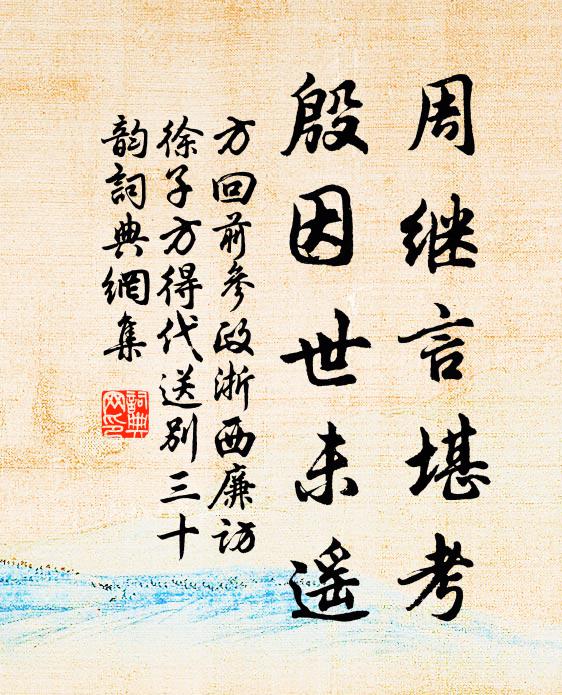 周继言堪考
殷因世未遥
方回前參政浙西廉访
徐子方得代送别三十
韵詞典網集
詞典
网印